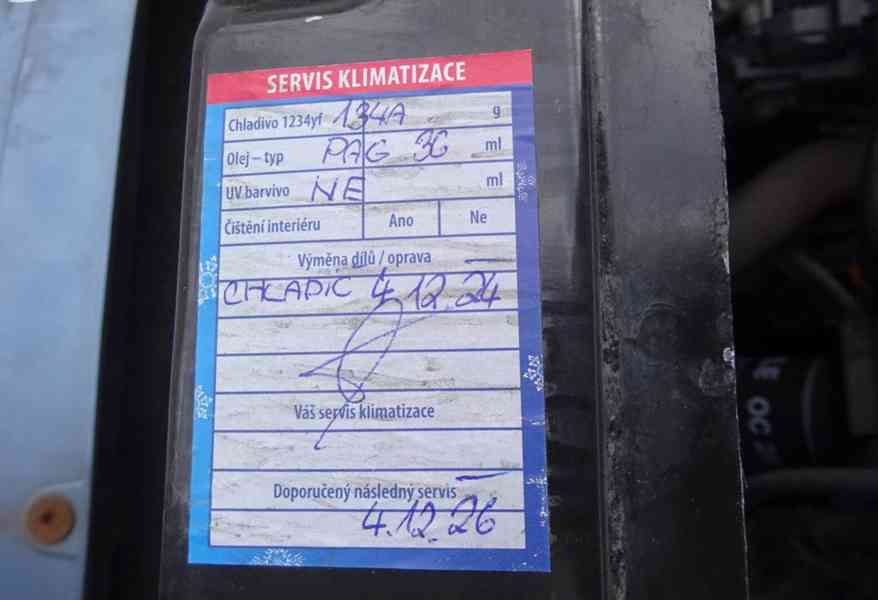 SERVIS KLIMATIZACE
Chladivo 1234yf 134A g
Olej – typ PAG 36 ml
UV barvivo NE ml
Čištění interiéru Ano Ne
Výměna dílů / oprava
CHLADIČ 4.12.24
Váš servis klimatizace
Doporučený následný servis
4.12.26
OC